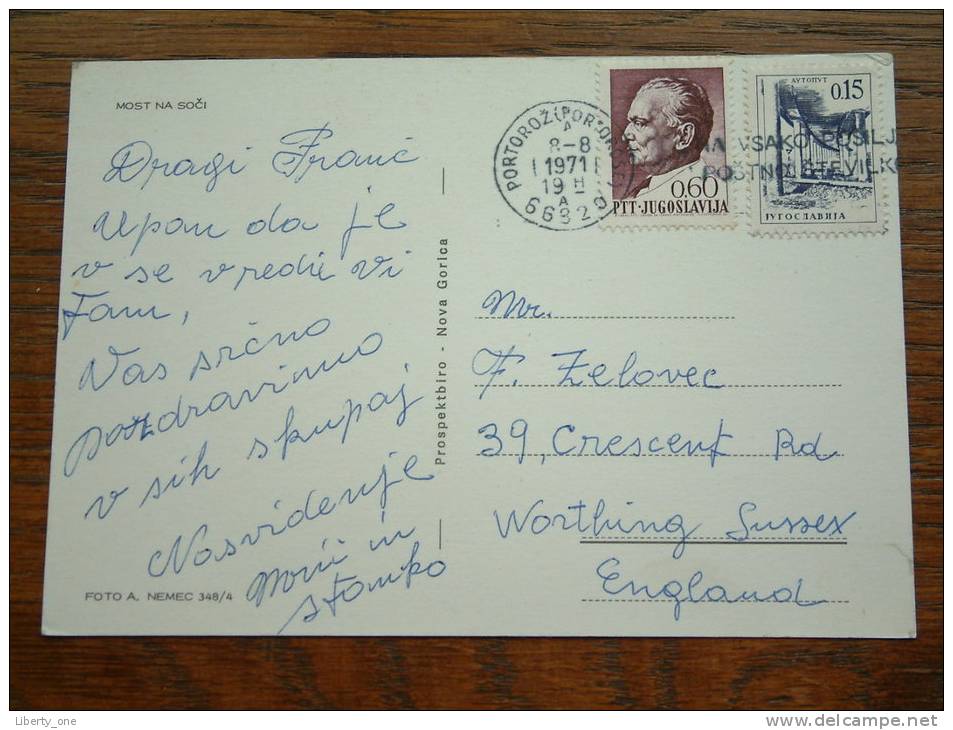 MOST NA SOČI
Dragi Franc
Upan da je
v se v redu vi
Fam,
Vas srčno
pozdravimo
v sih skupaj
Nasvidenje
in
stanko
FOTO A. NEMEC 348/4
Prospektbiro - Nova Gorica
PORTOROŽ
A
8-8
1971
19 H
A
66320
0.60
PTT-JUGOSLAVIJA
АУТОПУТ
0.15
ЈУГОСЛАВИЈА
NA VSAKO POŠILJ
POŠTNO ŠTEVILK
Mr.
F. Zelovec
39, Crescent Rd
Worthing Sussex
England
Liberty_one
http://www.delcampe.net